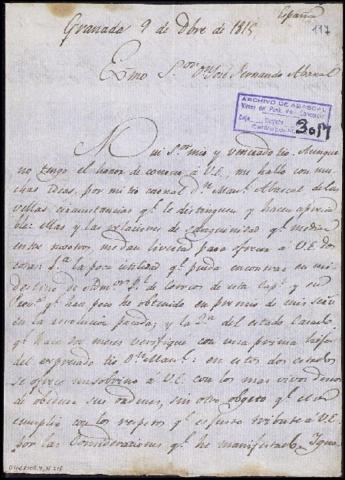 España
117
Granada 9 de Dbre de 1815
Exmo Sor Dn José Fernando Abascal
ARCHIVO DE ABASCAL
3017
Mui Sor mio y venerado tio. Aunque
no tengo el honor de conocer á V.E. me hallo con mu-
chas ideas, por mi tio carnal Dn Manl Abascal, de las
bellas circunstancias qe le distinguen y hacen aprecia-
ble: ellas y las relaciones de consanguinidad qe median
entre nosotros, me dan livertad para ofrecer á V.E.
la poca utilidad qe pueda encontrar en mi
destino de Admor pl de Correos de esta Capl y su
Provª qe hace poco he obtenido en premio de mis
en la revolucion pasada; y la del estado
qe hace dos meses verifiqué con una prima
del expresado tio Dn Manl: en estos dos
se ofrece un sobrino á V.E. con los mas vivos deseos
de obedecer sus ordenes, sin otro objeto qe el de
cumplir con los respetos qe es justo tribute á V.E.
por las consideraciones qe he manifestado. Igua